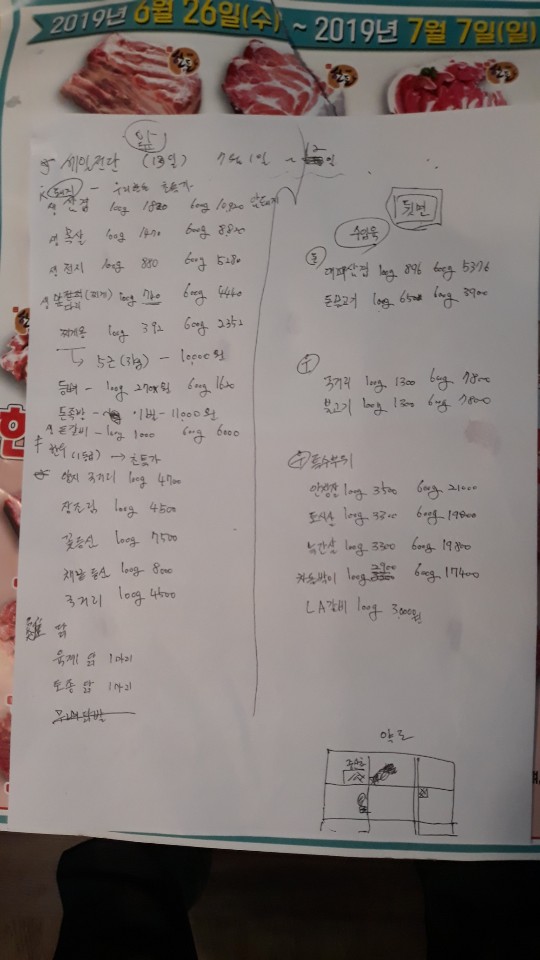 2019년 6월 26일(수) ~ 2019년 7월 7일(일)
한돈
앞
세일전단 (13일) 7월 1일 ~ 12일
돼지 - 초특가
생 삼겹 100g 1820 600g 10920
생 목살 100g 1470 600g 8820
생 전지 100g 880 600g 5280
100g 740 600g 4440
찌개용 100g 392 600g 2352
5근 (3kg) - 10,000원
등뼈 - 100g 270원 600g 1620
돈족발 - 1벌 - 11000원
생 돈갈비 - 100g 1000 600g 6000
한우 (1등급) → 초특가
양지 국거리 100g 4700
장조림 100g 4500
꽃등심 100g 7500
채끝 등심 100g 8000
국거리 100g 4500
닭
육계 닭 1마리
토종 닭 1마리
뒷면
수입육
돈
대패삼겹 100g 896 600g 5376
돈불고기 100g 650 600g 3900
우
국거리 100g 1300 600g 7800
불고기 100g 1300 600g 7800
우 특수부위
안창살 100g 3500 600g 21000
토시살 100g 3300 600g 19800
늑간살 100g 3300 600g 19800
차돌박이 100g 2900 600g 17400
LA갈비 100g 3,000원
약도
한